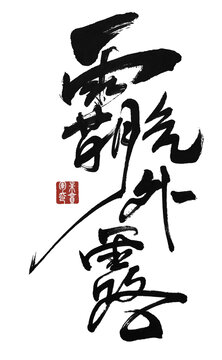 霸气外露